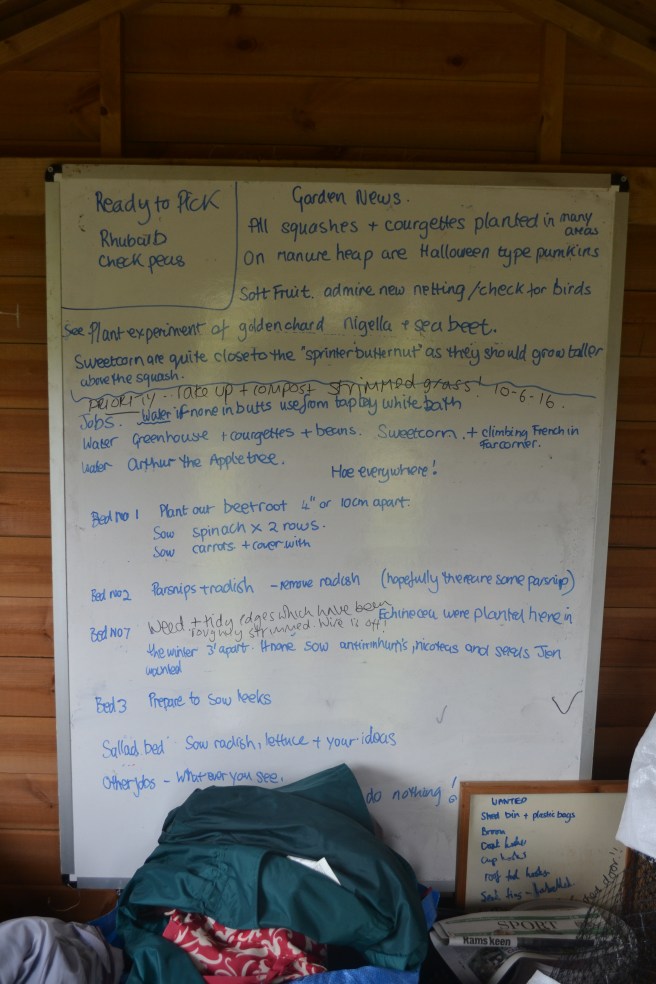 Ready to Pick
Rhubarb
Check peas
Garden News.
All squashes + courgettes planted in many areas
On manure heap are Halloween type pumkins
Soft Fruit. admire new netting/check for birds
See Plant experiment of golden chard nigella + sea beet.
Sweetcorn are quite close to the "sprinter butternut" as they should grow taller
above the squash.
PRIORITY - Take up + compost strimmed grass! 10-6-16.
Jobs. Water if none in butts use from tap by white bath
Water Greenhouse + courgettes + beans. Sweetcorn + climbing French in
far corner.
Water Arthur the Apple tree.
Hoe everywhere!
Bed no 1 Plant out beetroot 4" or 10cm apart.
Sow spinach x 2 rows.
Sow carrots + cover with
Bed no2 Parsnips + radish - remove radish (hopefully there are some parsnip)
Bed no7 Weed + tidy edges which have been
roughly strimmed. Wire is off!
Echinecea were planted here in
the winter 3' apart. If none sow antirrinhum's, nicoteas and seeds Jen
wanted
Bed 3 Prepare to sow leeks
Sallad bed Sow radish, lettuce + your ideas
Other jobs - What ever you see.
do nothing!
WANTED
Shed bin + plastic bags
Broom
Coat hooks
Cup hooks
roof tool hooks
door!!
SPORT
Rams keen